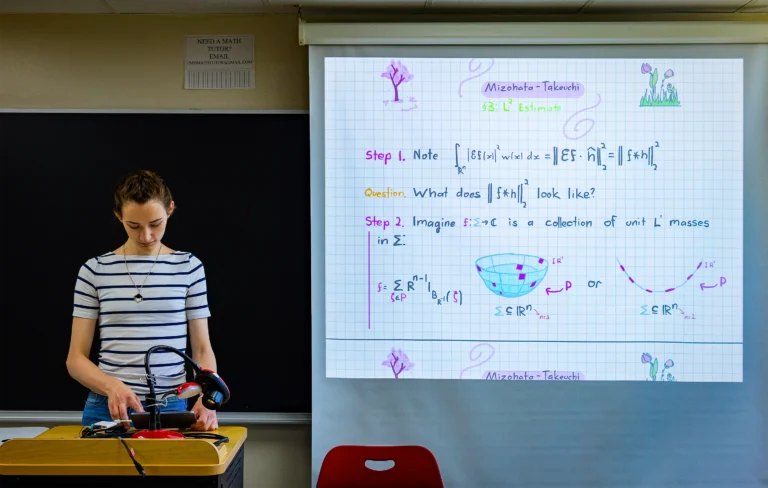 NEED A MATH
TUTOR?
EMAIL
Mizohata-Takeuchi
§3: L² Estimate
Step 1. Note ∫_{ℝⁿ} |Ɛf(x)|² w(x) dx = ‖Ɛf · ĥ‖₂² = ‖f*h‖₂²
Question. What does ‖f*h‖₂² look like?
Step 2. Imagine f: Σ→ℂ is a collection of unit L¹ masses
in Σ.
f = Σ_{ξ∈P} R^{n-1} 1_{B_{R⁻¹}(ξ)}
I R⁻¹
P
or
I R⁻¹
P
Σ ⊆ ℝⁿ n=3
Σ ⊆ ℝⁿ n=2
Mizohata-Takeuchi